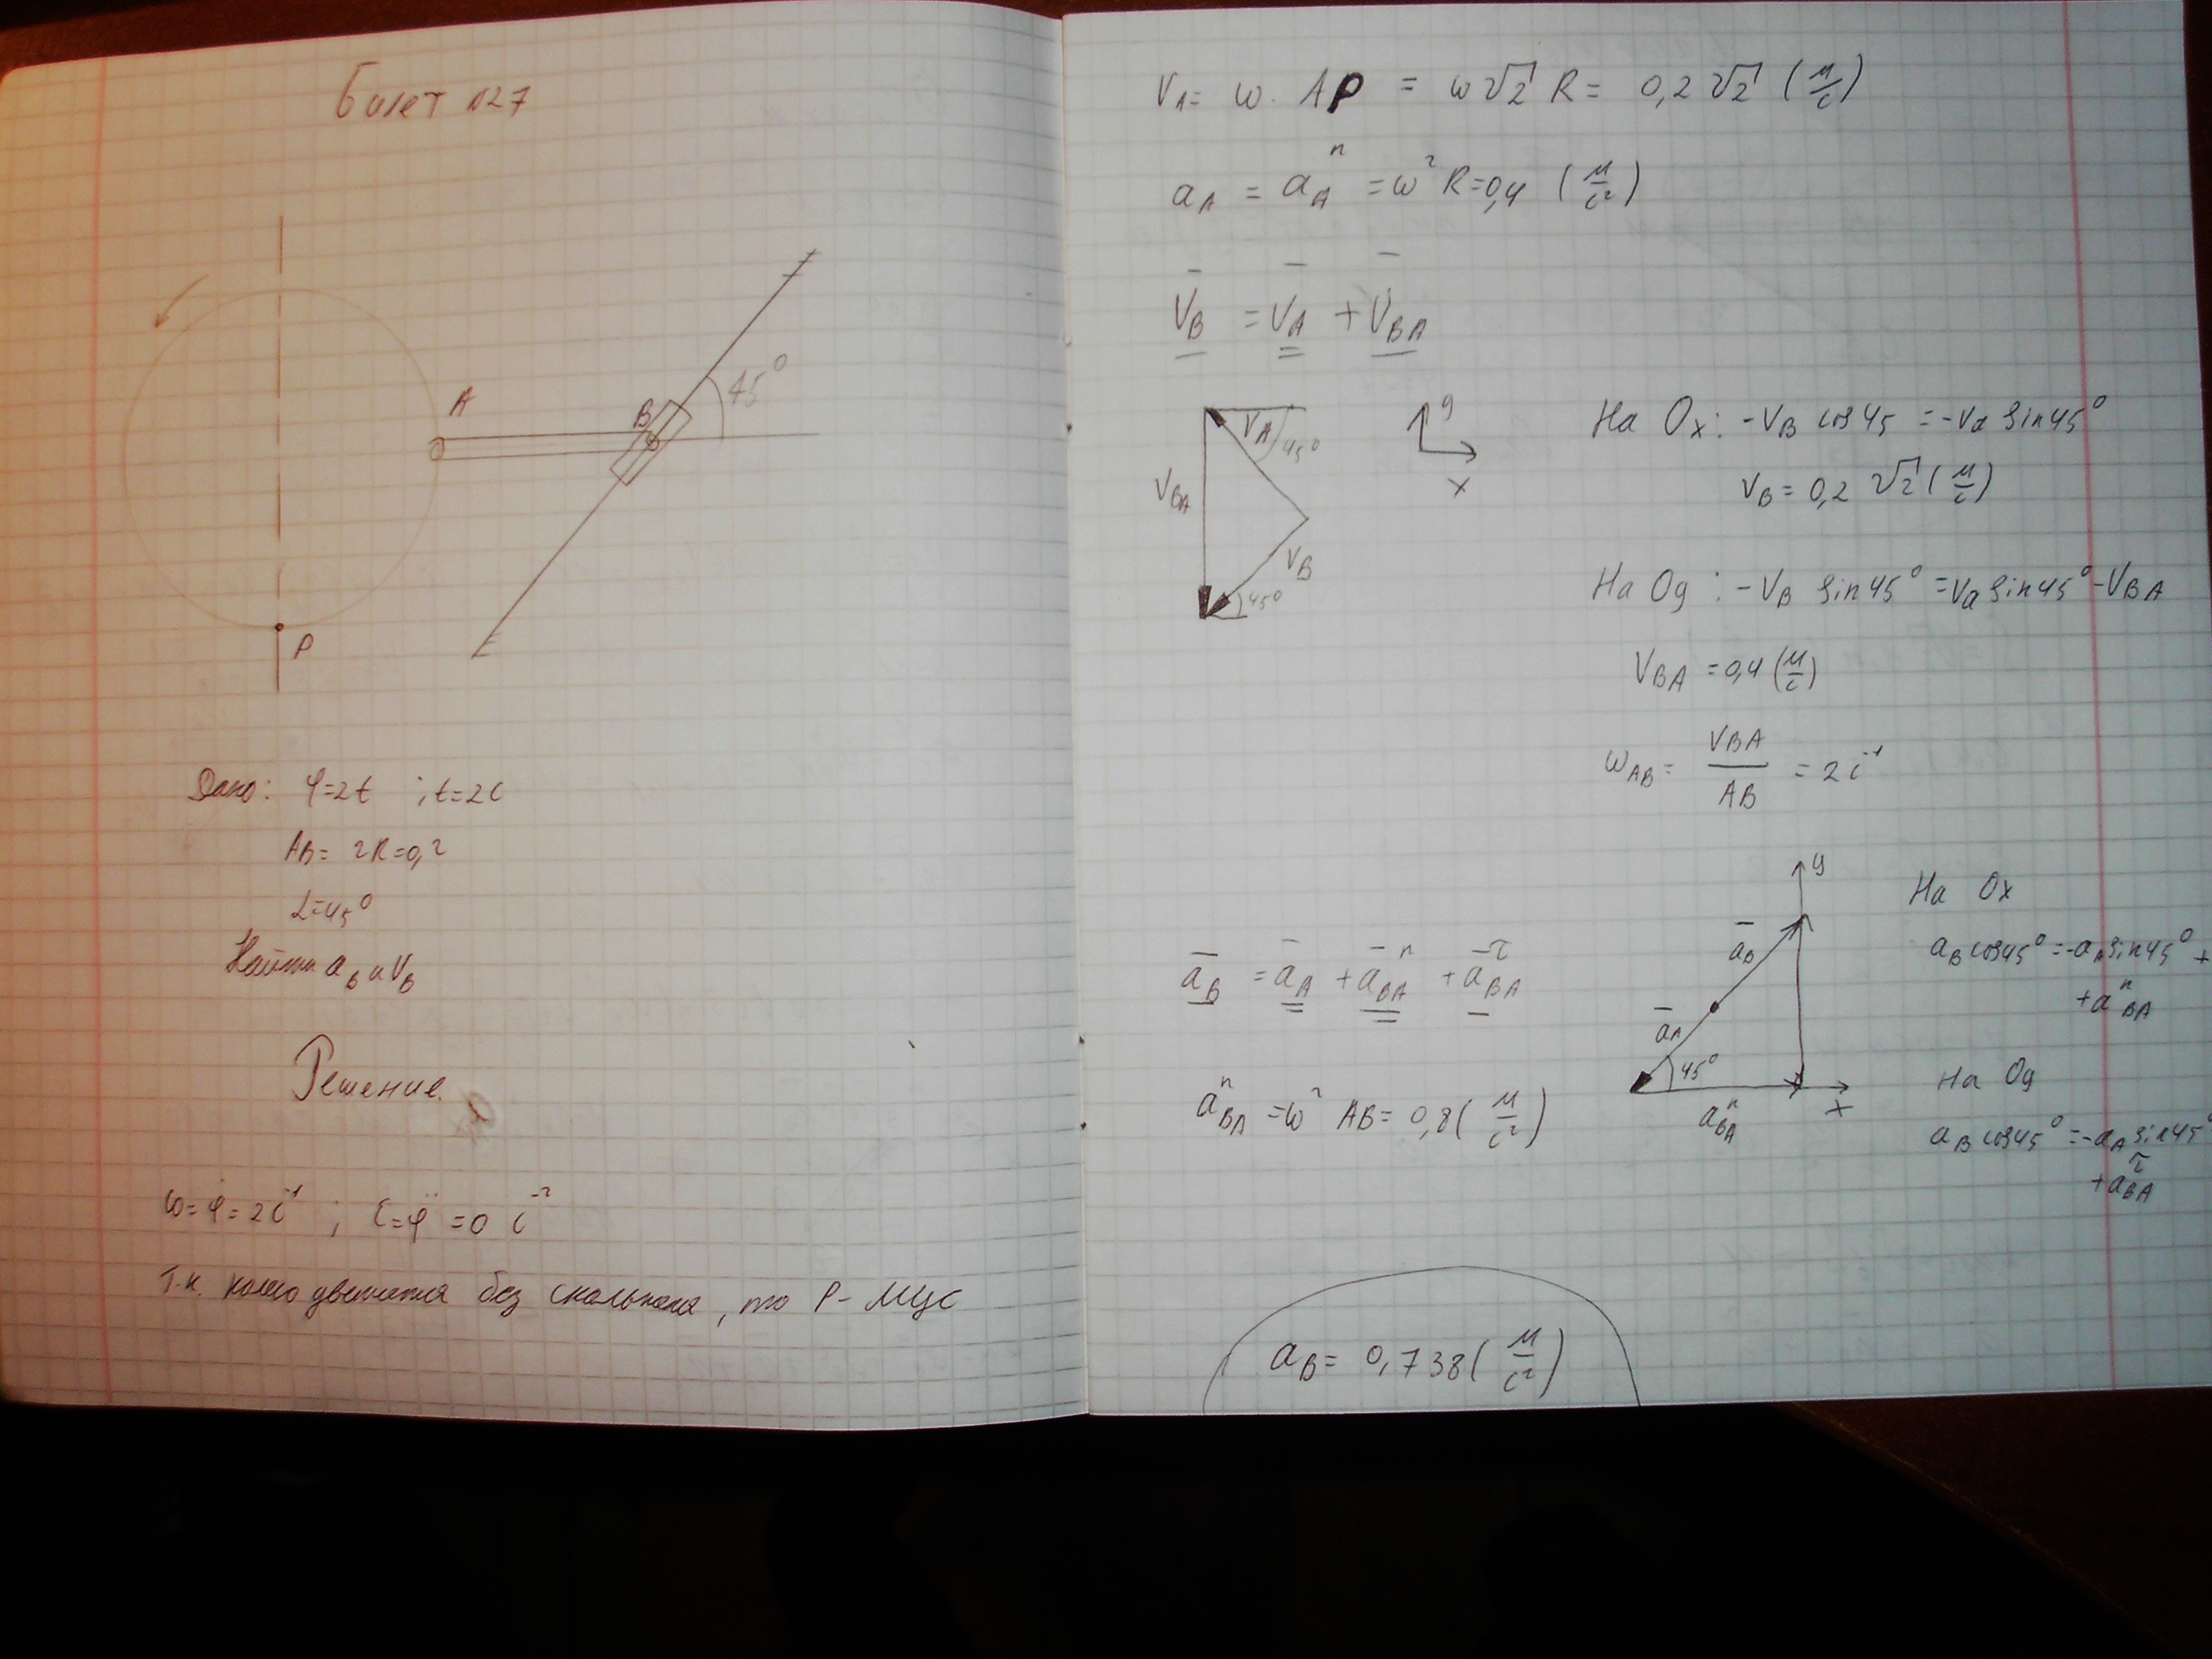 Билет №27
A
B
45°
P
Дано: φ=2t ; t=2c
AB= 2R=0,2
α=45°
Найти a_B и V_B
Решение.
ω=φ̇=2c⁻¹ ; ε=φ̈=0 c⁻²
Т.к. колесо движется без скольжения, то P- МЦС
V_A= ω · AP = ω√2 R= 0,2√2 (м/с)
a_A = a_A^n = ω² R=0,4 (м/с²)
V̄_B = V̄_A + V̄_BA
V_A
45°
V_BA
V_B
45°
y
x
На Ox: -V_B cos45 = -V_a sin45°
V_B= 0,2√2 (м/с)
На Oy : -V_B sin45° =V_a sin45° -V_BA
V_BA =0,4 (м/с)
ω_AB= V_BA / AB = 2c⁻¹
ā_B = ā_A + ā_BA^n + ā_BA^τ
a_BA^n =ω² AB= 0,8 (м/с²)
y
ā_B
ā_A
45°
a_BA^n
x
На Ox
a_B cos45° =-a_A sin45° +
+a_BA^n
На Oy
a_B cos45° =-a_A sin45°
+a_BA^τ
a_B= 0,738 (м/с²)